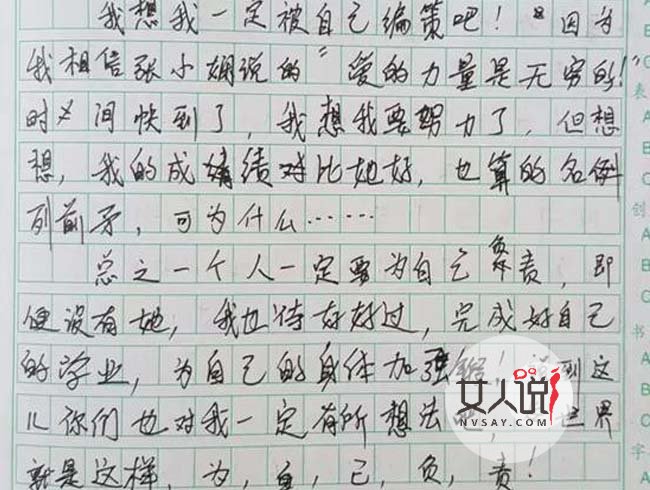 我想我一定被自己编策吧！"因为
我相信张小娴说的"爱的力量是无穷的！"
时间快到了，我想我要努力了，但想
想，我的成绩对比她好，也算的名例
列前矛，可为什么……
总之一个人一定要为自己负责，即
便没有她，我也待好好过，完成好自己
的学业，为自己的身体加强 到这
儿你们也对我一定有所想法 世界
就是这样，为，自，己，负，责！
表
创
书
字
女人说
NVSAY.COM